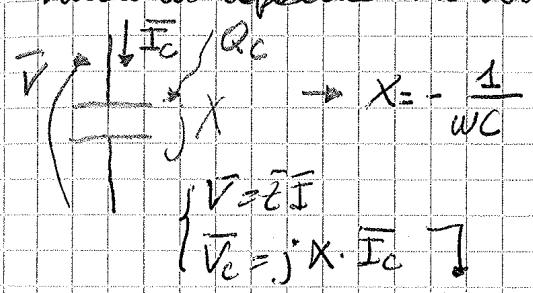 V̅ I̅c Qc
jX → X = - 1/ωC
V̅ = z̅ I̅
V̅c = jX · I̅c